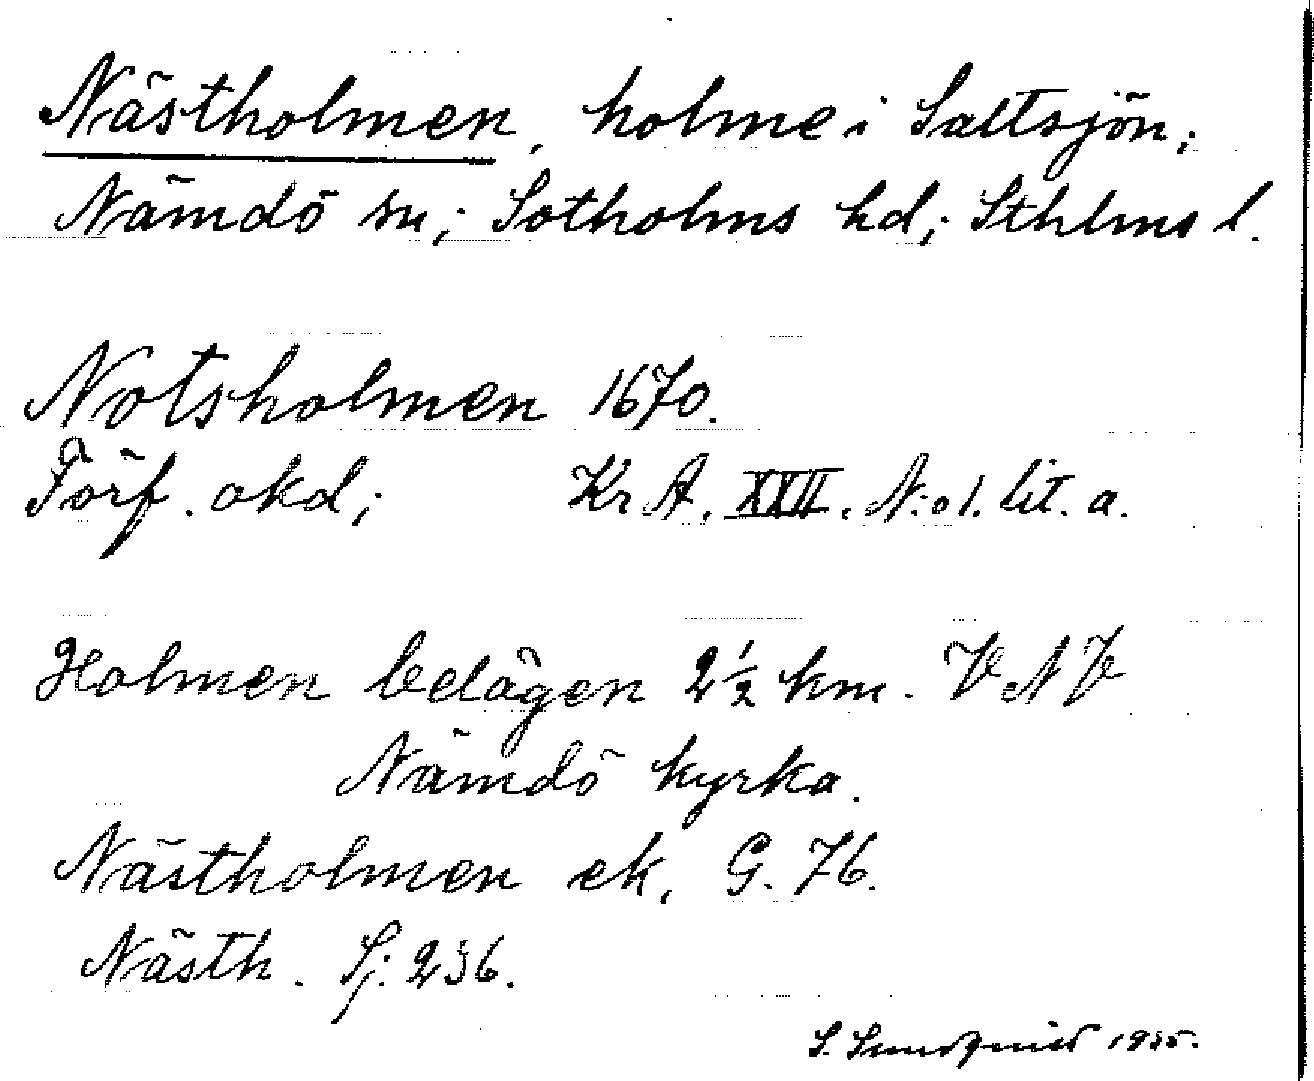 Nästholmen, holme i Saltsjön;
Nämdö sn; Sotholms hd; Sthlms l.
Notsholmen 1670.
Förf. okd; Kr A. XXII. N:o 1. lit. a.
Holmen belägen 2 1/2 km. V N V
Nämdö kyrka.
Nästholmen ek, G. 76.
Nästh. Sj. 236.
S. Sundquist 1935.